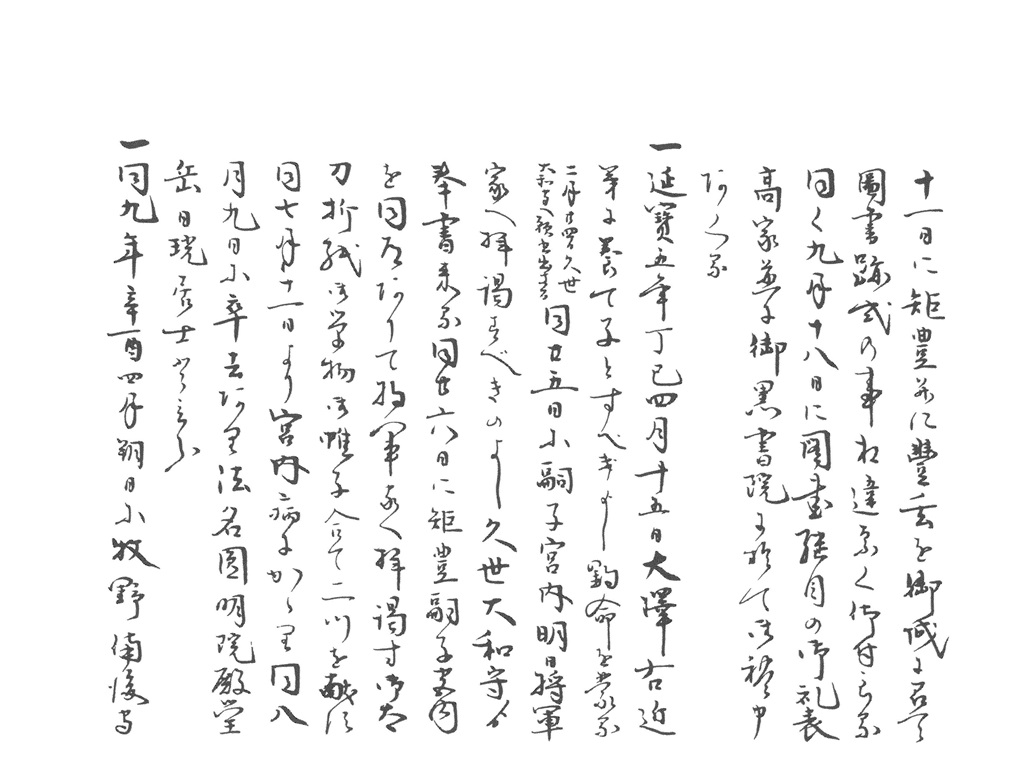 十一日に矩豊並に豊玄を御城に召て
圖書跡式の事相違なく御付与る
同く九月十八日に圖書継目の御礼表
高家並に御黒書院に於て御礼申
一延寶五年丁巳四月十五日大澤右近
弟に養て子とすべきよし鈞命を蒙る
二月廿四日久世
同廿五日に嗣子宮内明日将軍
家へ拝謁すべきのよし久世大和守より
奉書来る同廿六日に矩豊嗣子宮内
を同道ありて将軍家へ拝謁す御太
刀折紙御単物御帷子合て二つを献ず
同七月十一日より宮内病にかゝり同八
月九日に卒去あり法名圓明院殿堂
岳日琉居士といふ
一同九年辛酉四月朔日に牧野備後守